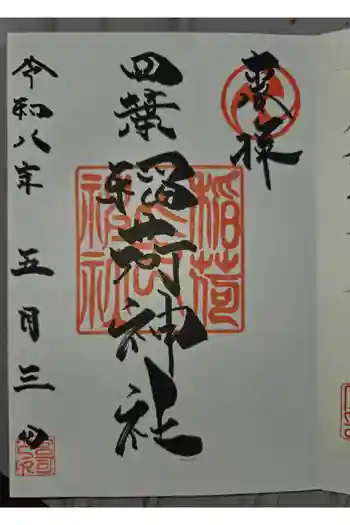 奉拝
四葉稲荷神社
令和八年五月三日
稲荷